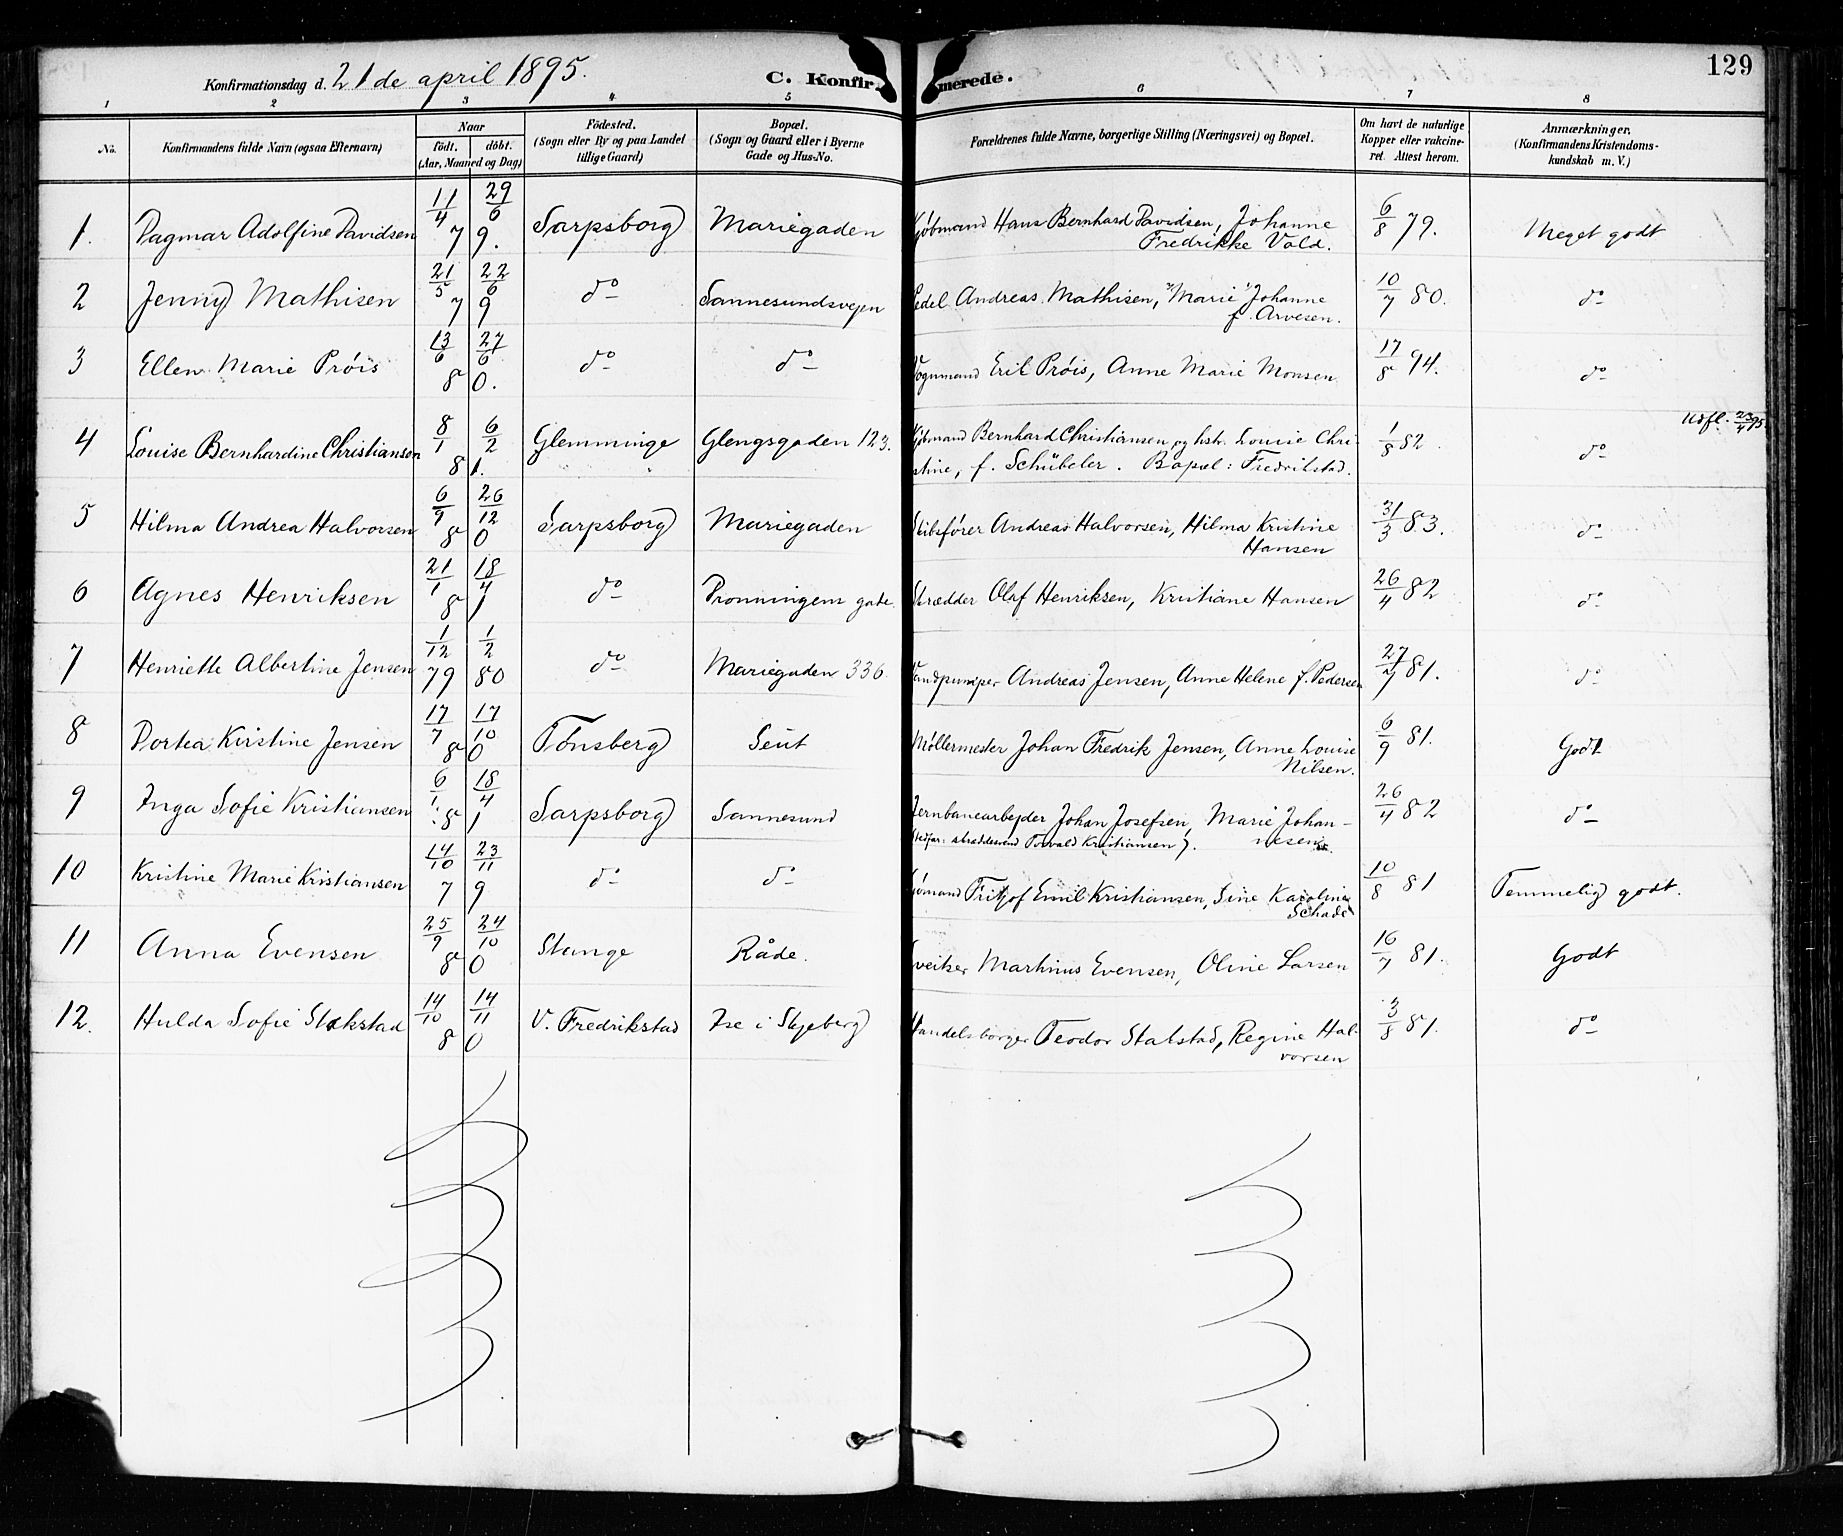 Konfirmationsdag d. 21 de april 1895.
C. Konfirmerede.
129
1 2 3 4 5 6 7 8
No.
Konfirmandens fulde Navn (ogsaa Efternavn)
Naar
födt. döbt.
(Aar, Maaned og Dag)
Födested.
(Sogn eller By og paa Landet
tillige Gaard)
Bopæl.
(Sogn og Gaard eller i Byerne
Gade og Hus-No.
Forældrenes fulde Navne, borgerlige Stilling (Næringsvei) og Bopæl.
Om havt de naturlige
Kopper eller vakcine-
ret. Attest herom.
Anmærkninger.
(Konfirmandens Kristendoms-
kundskab m. V.)
1. Dagmar Adolfine Davidsen 11/4 29/6 79. Sarpsborg Mariegaden Kjøbmand Hans Bernhard Davidsen, Johanne
Fredrikke Vold. 6/8 79. Meget godt
2 Jenny Mathisen 21/5 22/6 79 do Sannesundsvejen Pedel Andreas Mathisen, "Marie" Johanne
f. Arvesen. 10/7 80. do
3 Ellen Marie Prøis 13/6 27/6 80. do do Vognmand Erik Prøis, Anne Marie Monsen 17/8 94. do
Udfl. 23/4 95.
4 Louise Bernhardine Christiansen 8/1 6/2 81. Glemminge Glengsgaden 123. Kjøbmand Bernhard Christiansen og hstr. Louise Chri-
stine, f. Schübeler. Bopæl: Fredrikstad. 1/8 82. do
5 Hilma Andrea Halvorsen 6/9 26/12 80 Sarpsborg Mariegaden Skibsfører Andreas Halvorsen, Hilma Kristine
Hansen 31/3 83. do
6 Agnes Henriksen 21/1 18/4 81 do Dronningens gade. Skrædder Olaf Henriksen, Kristiane Hansen 26/4 82 do
7 Henriette Albertine Jensen 1/12 79 1/2 80 do Mariegaden 336 Vandpumper Andreas Jensen, Anne Helene f. Pedersen 27/7 81. do
8 Dortea Kirstine Jensen 17/7 17/10 80 Tønsberg Seut Møllermester Johan Fredrik Jensen, Anne Louise
Nilsen. 6/9 81. Godt
9 Inga Sofie Kristiansen 6/1 18/4 81 Sarpsborg Sannesund Jernbanearbejder Johan Josefsen, Marie Johan-
nesen. (Stedfar: skræddersvend Torvald Kristiansen). 26/4 82 do
10 Kristine Marie Kristiansen 14/10 23/11 79 do do Sjømand Fritjof Emil Kristiansen, Sine Karoline
Schade 10/8 81 Temmelig godt.
11 Anna Evensen 25/9 24/10 80 Stange Råde. Sveitser Martinus Evensen, Oline Larsen 16/7 81. Godt
12. Hulda Sofie Stakstad 14/10 14/11 80 V. Fredrikstad Ise i Skjeberg Handelsborger Teodor Stakstad, Regine Hal-
vorsen 3/8 81. do